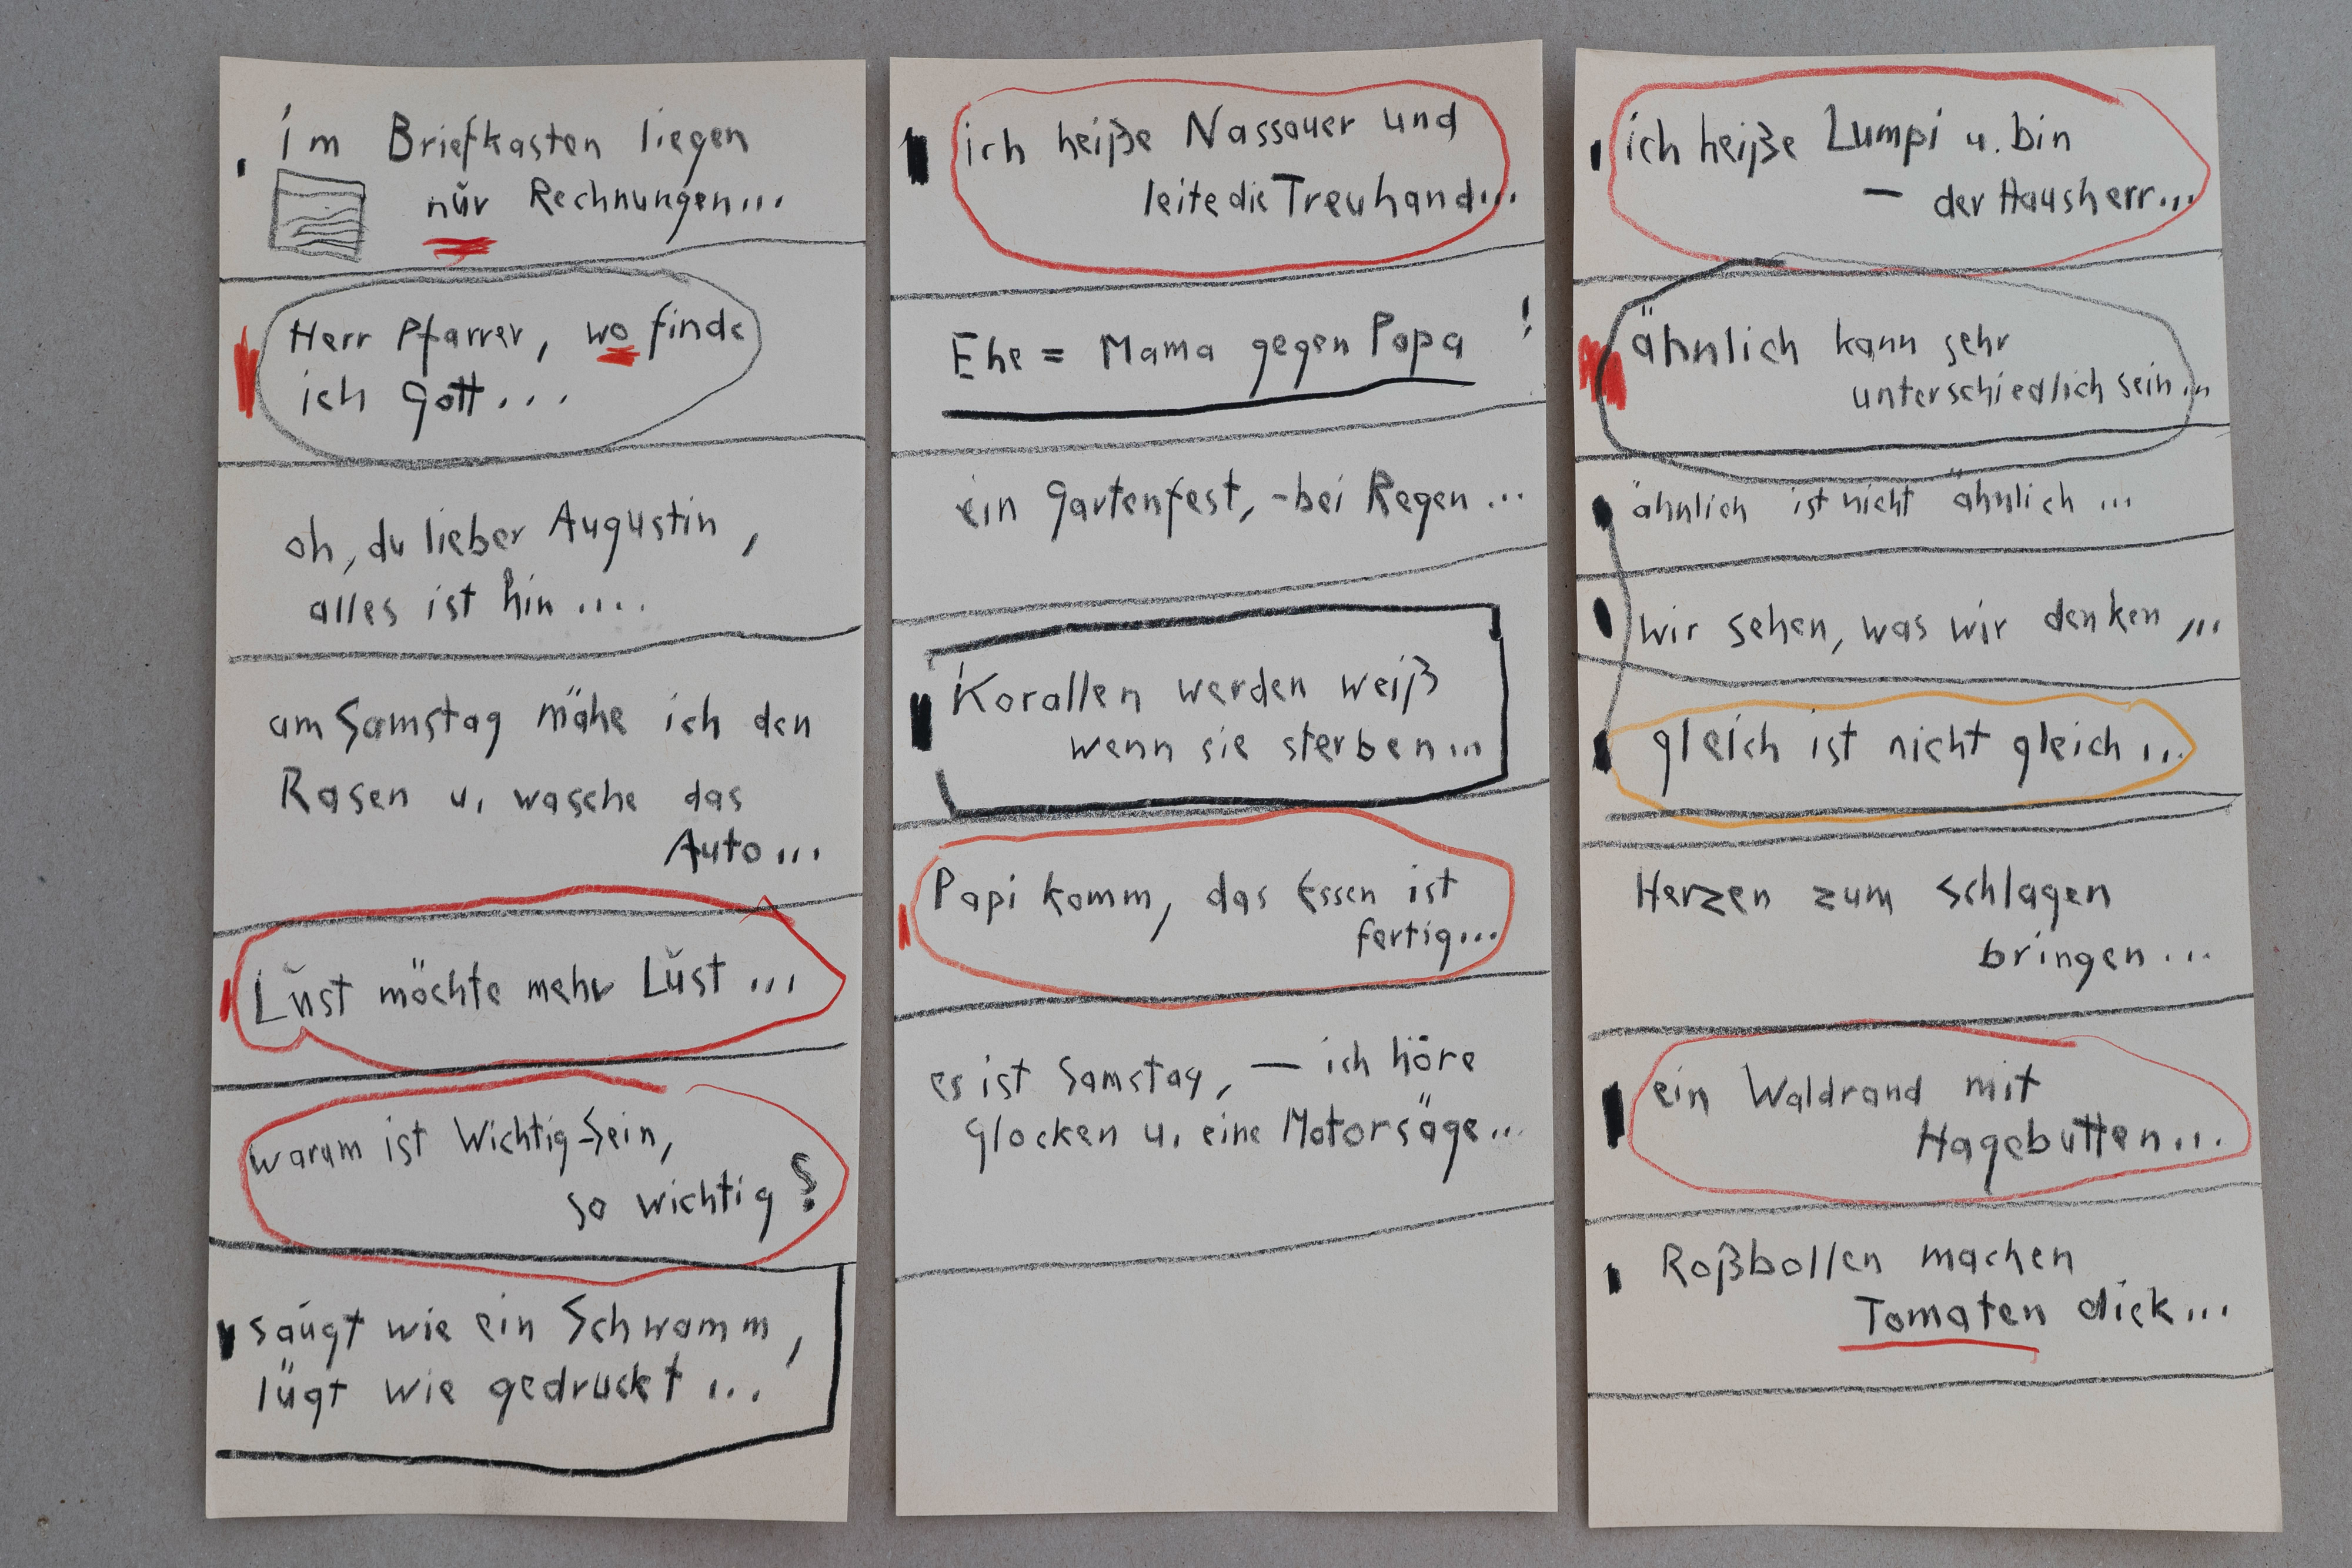 im Briefkasten liegen
nŭr Rechnungen...
Herr Pfarrer, wo finde
ich Gott...
oh, du lieber Augustin,
alles ist hin....
am Samstag mähe ich den
Rasen u. wasche das
Auto...
Lŭst möchte mehr Lŭst...
warum ist Wichtig-Sein,
so wichtig?
saugt wie ein Schwamm,
lügt wie gedruckt...
ich heiße Nassauer und
leite die Treuhand...
Ehe = Mama gegen Papa!
ein Gartenfest, - bei Regen...
Korallen werden weiß
wenn sie sterben...
Papi komm, das Essen ist
fertig...
es ist Samstag, — ich höre
Glocken u. eine Motorsäge...
ich heiße Lumpi u. bin
— der Hausherr...
ähnlich kann sehr
unterschiedlich sein...
ähnlich ist nicht ähnlich...
wir sehen, was wir denken...
gleich ist nicht gleich...
Herzen zum schlagen
bringen...
ein Waldrand mit
Hagebutten...
Roßbollen machen
Tomaten dick...